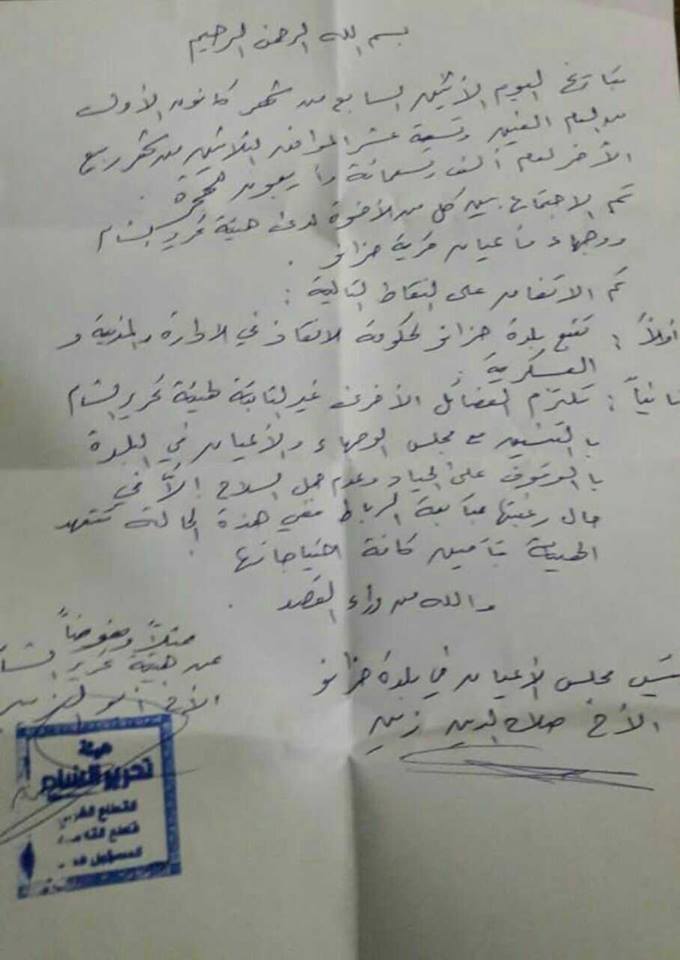 بسم الله الرحمن الرحيم
بتاريخ اليوم الأثنين السابع من شهر كانون الأول
من العام الفين وتسعة عشر الموافق الثلاثين من شهر ربيع
الأخر لعام ألف وأربعمائة وأربعون هجرة
تم الاجتماع بين كل من الأخوة لدى هيئة تحرير الشام
ووجهاء وأعيان قرية حزانو
تم الاتفاق على النقاط التالية :
أولاً : تتبع بلدة حزانو لحكومة الانقاذ في الادارة المدنية و
العسكرية
ثانياً : تلتزم الفصائل الأخرى غير التابعة لهيئة تحرير الشام
بالتنسيق مع مجلس الوجهاء والأعيان في البلدة
بالوقوف على الحياد وعدم حمل السلاح إلاّ في
حال رغبتها متابعة الرباط ففي هذة الحالة تتعهد
الهيئة بتأمين كافة احتياجاتها
والله من وراء القصد .
ممثلاً ومفوضاً
عن هيئة تحرير الشام
الأخ
مجلس الأعيان في بلدة حزانو
الأخ صلاح الدين زين
هيئة
تحرير الشام
القطاع
قطاع
المسؤول